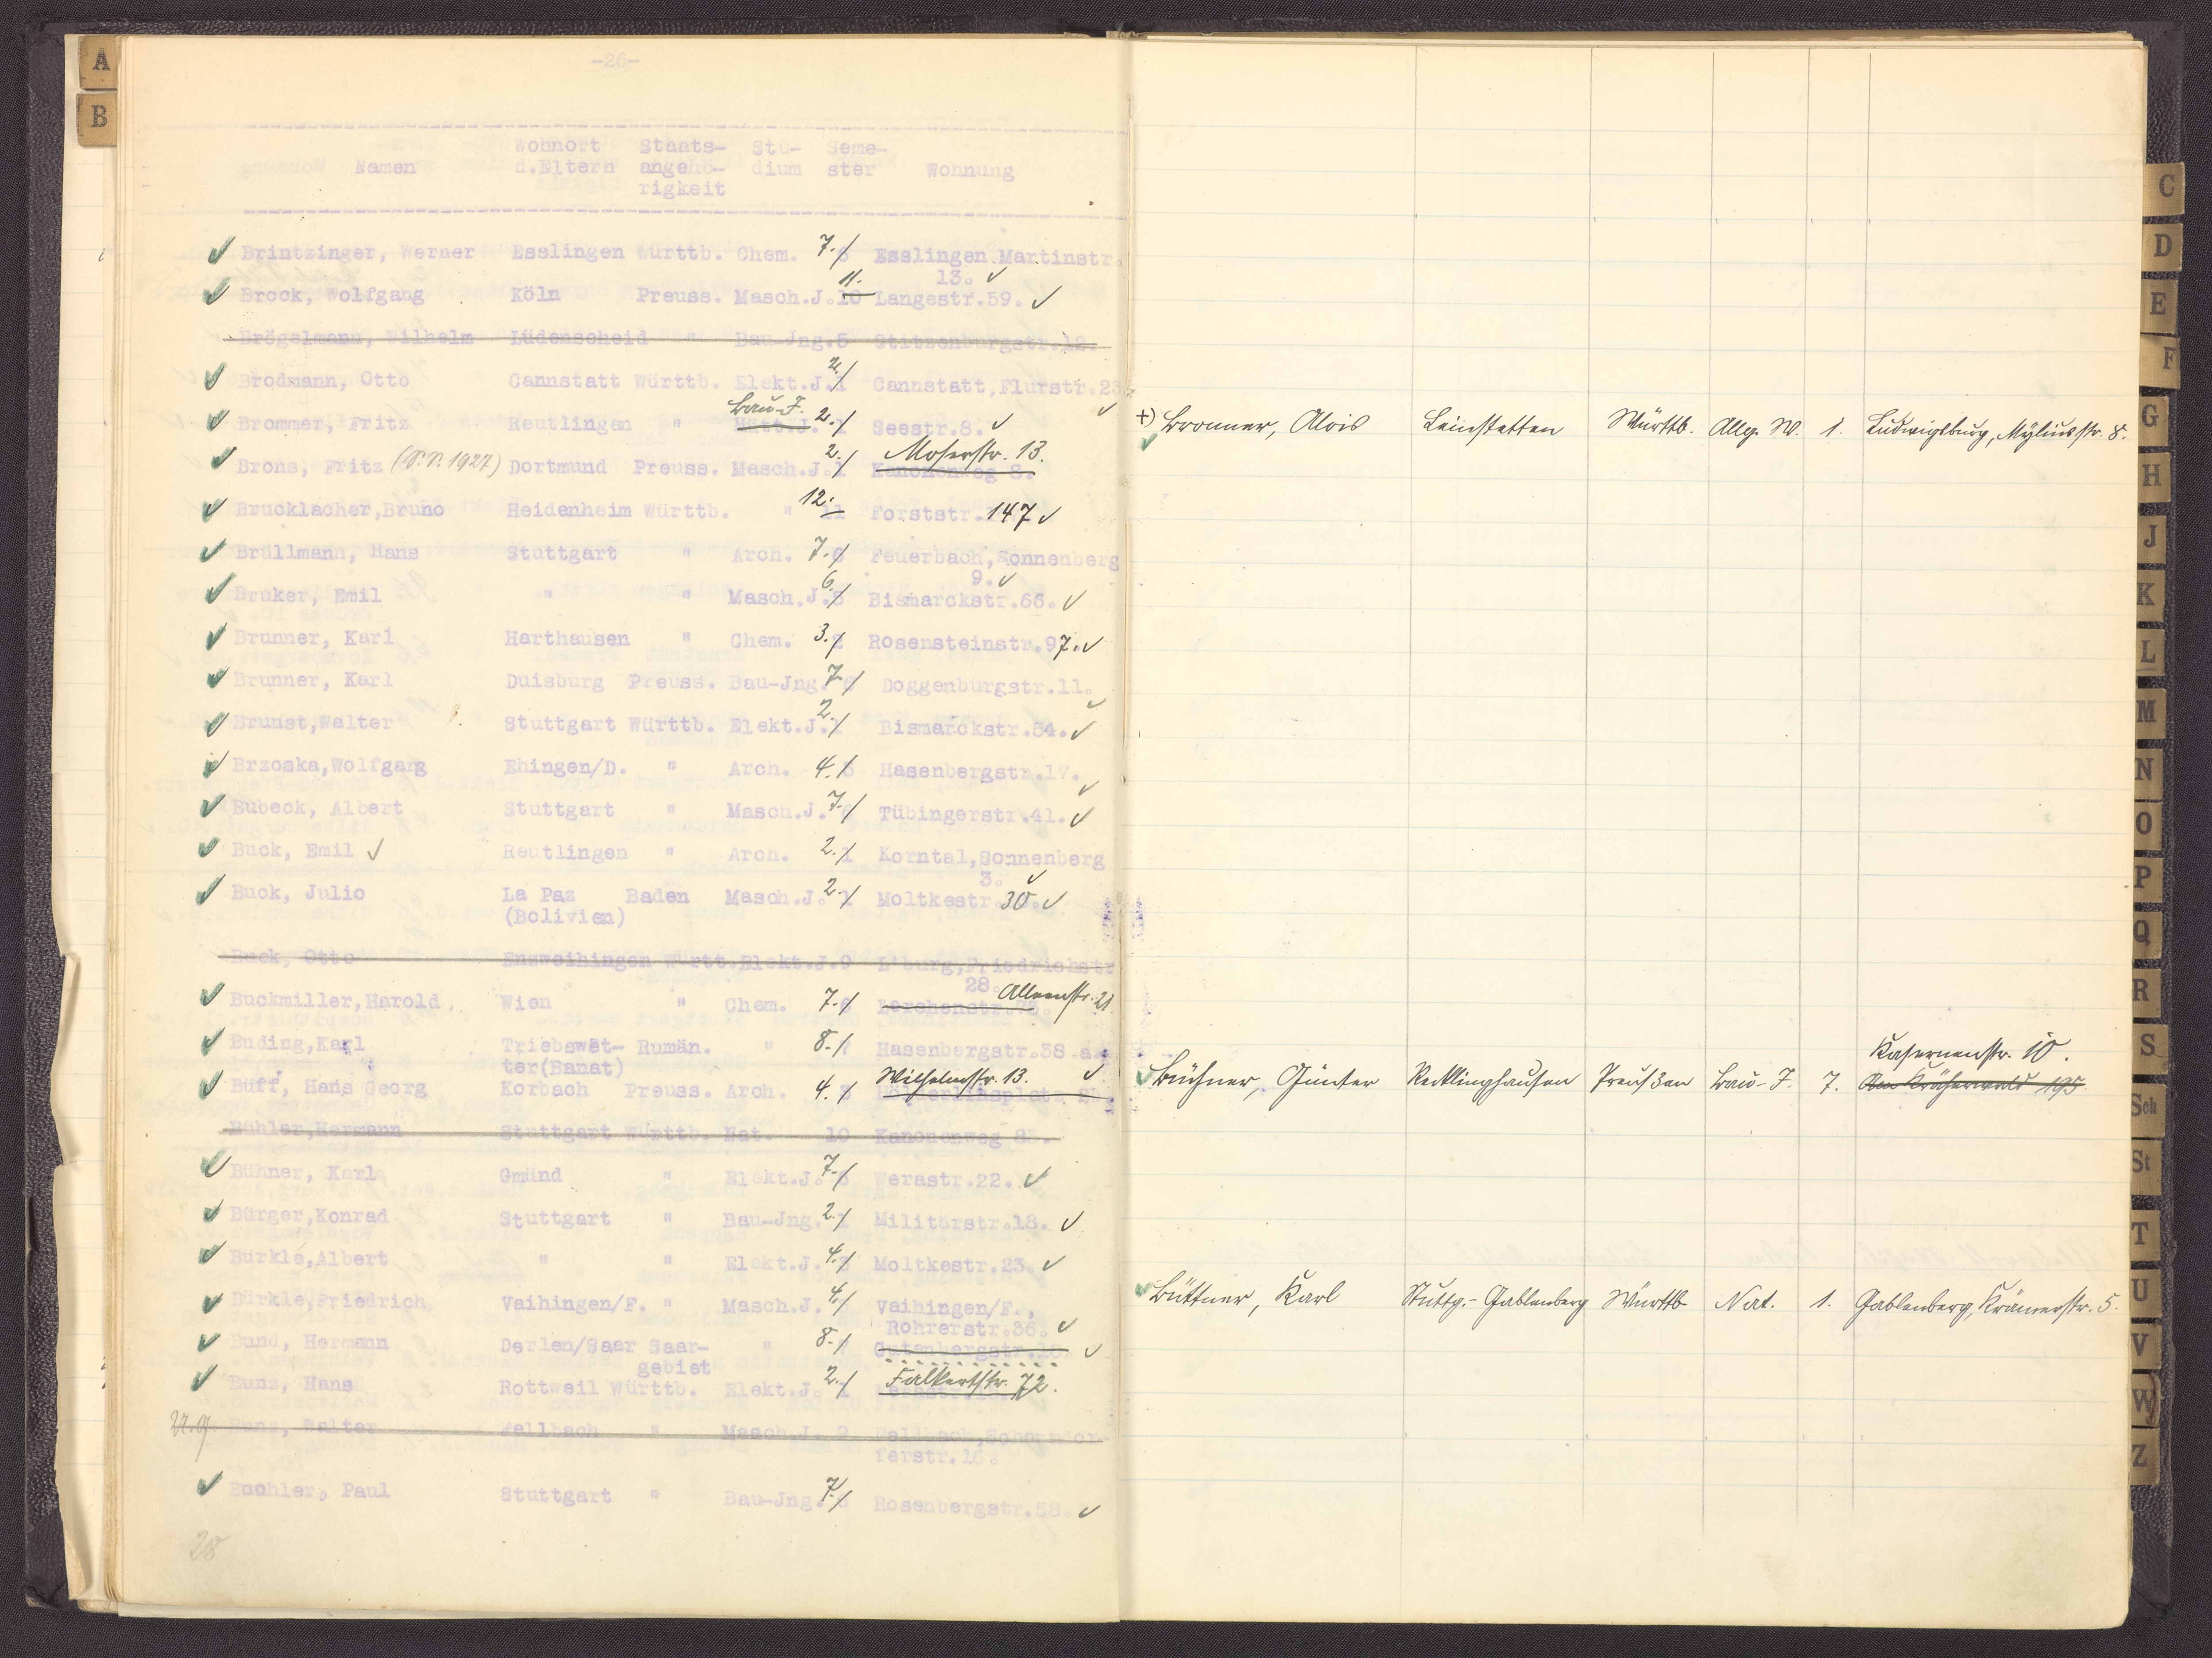 A
B
-26-
Namen Wohnort d.Eltern Staats-angehö-rigkeit Stu-dium Seme-ster Wohnung
Brintzinger, Werner Esslingen Württb. Chem. 7. Esslingen,Martinstr.
13.
Brock, Wolfgang Köln Preuss. Masch.J. 10 11. Langestr.59.
Brögelmann, Wilhelm Lüdenscheid " Bau-Jng.5 Stitzenburgstr.12.
Brodmann, Otto Cannstatt Württb. Elekt.J.1 2. Cannstatt,Flurstr.23
Bau-J.
Brommer, Fritz Reutlingen " Hütt.J. 1 2. Seestr.8.
Moserstr. 13.
Brons, Fritz (P.P. 1927) Dortmund Preuss. Masch.J.1 2. Kanonenweg 8.
Brucklacher,Bruno Heidenheim Württb. " 11 12. Forststr.147
Brüllmann, Hans Stuttgart " Arch. 7. Feuerbach,Sonnenberg
9.
Bruker, Emil " " Masch.J.5 6. Bismarckstr.66.
Brunner, Karl Harthausen " Chem. 3. 2 Rosensteinstr.97.
Brunner, Karl Duisburg Preuss. Bau-Jng. 7. Doggenburgstr.11.
Brunst,Walter Stuttgart Württb. Elekt.J.1 2. Bismarckstr.54.
Brzoska,Wolfgang Ehingen/D. " Arch. 4. 3 Hasenbergstr.17.
Bubeck, Albert Stuttgart " Masch.J. 7. Tübingerstr.41.
Buck, Emil Reutlingen " Arch. 2. 1 Korntal,Sonnenberg
3.
Buck, Julio La Paz Baden Masch.J. 2. 1 Moltkestr 30.
(Bolivien)
Buck, Otto Enzweihingen Württ.Elekt.J.9 L'burg,Friedrichstr
28.
Allenstr. 21
Buckmiller,Harold Wien " Chem. 7. Lerchenstr.
Buding,Karl Triebswet- Rumän. " 8. Hasenbergstr.38 a.
ter(Banat)
Wilhelmstr. 13.
Büff, Hans Georg Korbach Preuss. Arch. 4. 3
Bühler,Hermann Stuttgart Württb. Nat. 10 Kanonenweg
Bühner, Karl Gmünd " Elekt.J. 7. Werastr.22.
Bürger,Konrad Stuttgart " Bau-Jng. 2. 1 Militärstr.18.
Bürkle,Albert " " Elekt.J. 4. 3 Moltkestr.23.
Bürkle,Friedrich Vaihingen/F. " Masch.J. 4. Vaihingen/F.,
Rohrerstr.36.
Bund, Hermann Derlen/Saar Saar- " 8. Gutenbergstr.
gebiet
Bunz, Hans Rottweil Württb. Elekt.J. 2. 1 Falkertstr. 72.
Bunz, Walter Fellbach " Masch.J. 9 Fellbach,Schorndor-
ferstr.16.
Buohler, Paul Stuttgart " Bau-Jng. 7. Rosenbergstr.58.
28
+) Bronner, Alois Leinstetten Württb. Allg. W. 1. Ludwigsburg, Myliusstr. 8.
Kasernenstr. 10.
Bühner, Günter Recklinghausen Preußen Bau-J. 7. Am Kräherwald 195
Büttner, Karl Stuttg.-Gablenberg Württb Nat. 1. Gablenberg, Krämerstr. 5.
C
D
E
F
G
H
J
K
L
M
N
O
P
Q
R
S
Sch
St
T
U
V
W
Z